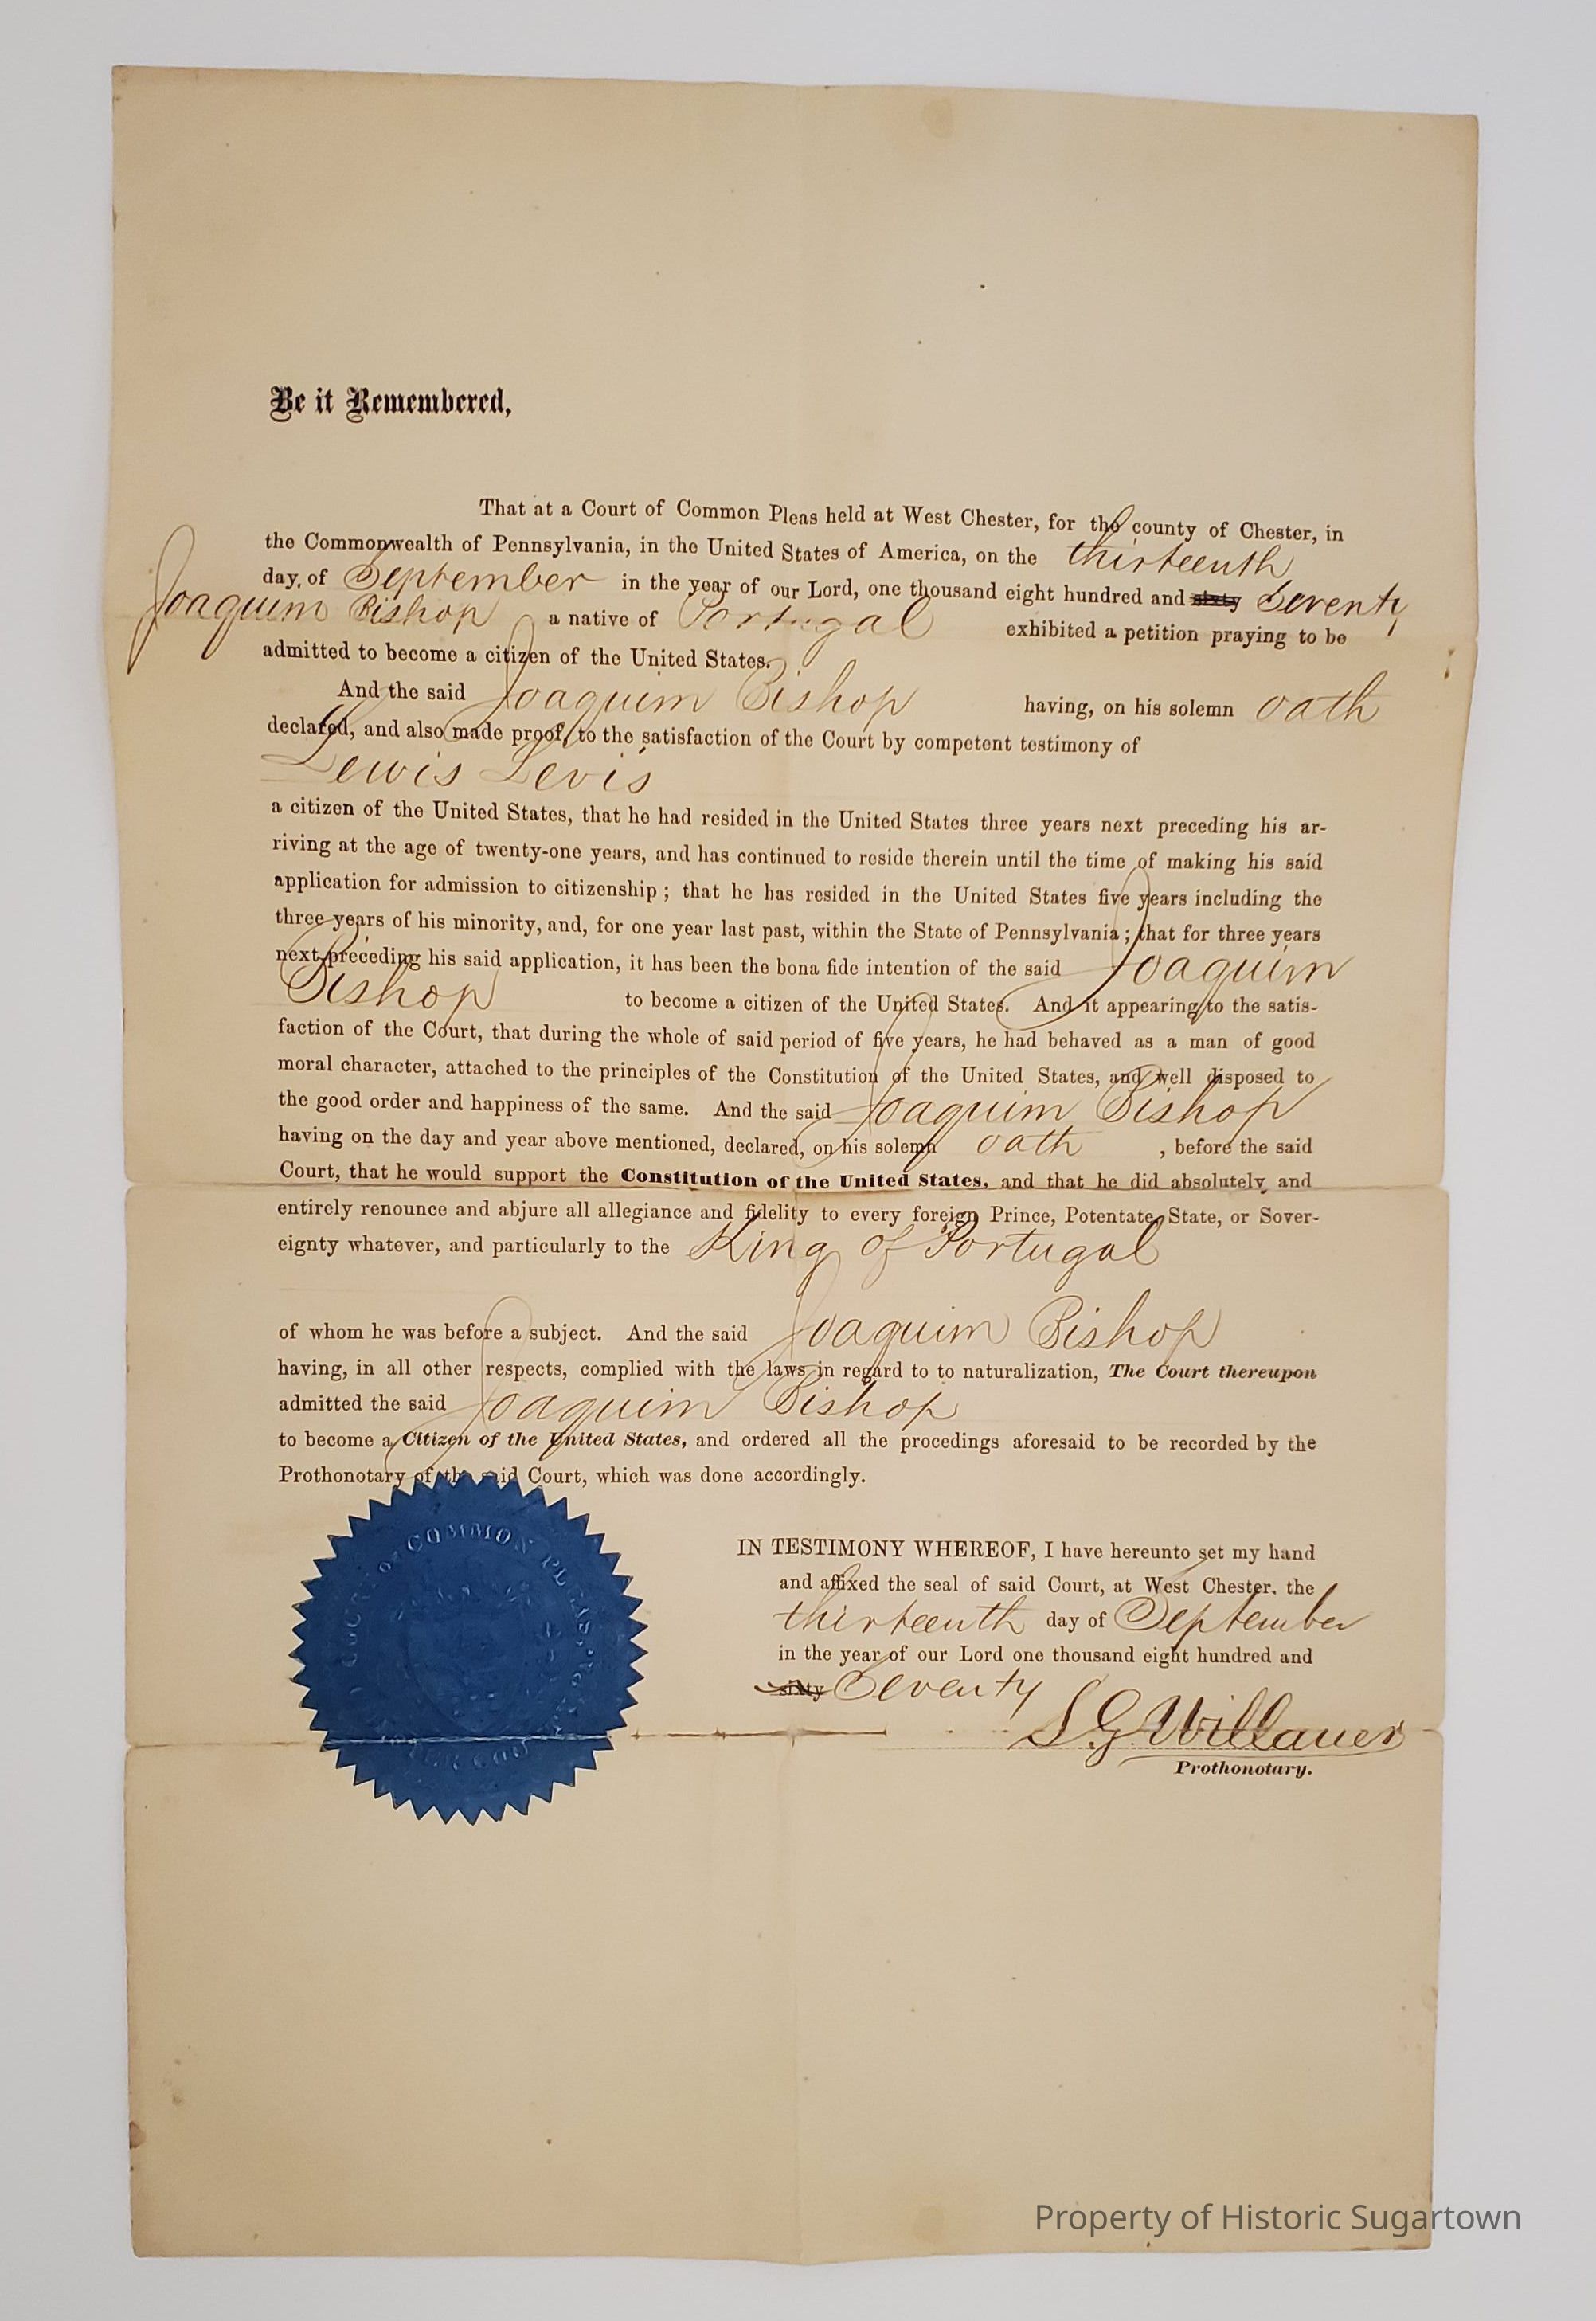 Be it Remembered,
That at a Court of Common Pleas held at West Chester, for the county of Chester, in
the Commonwealth of Pennsylvania, in the United States of America, on the thirteenth
day of September in the year of our Lord, one thousand eight hundred and sixty Seventy
Joaquim Bishop a native of Portugal exhibited a petition praying to be
admitted to become a citizen of the United States.
And the said Joaquim Bishop having, on his solemn oath
declared, and also made proof, to the satisfaction of the Court by competent testimony of
Lewis Levis
a citizen of the United States, that he had resided in the United States three years next preceding his ar-
riving at the age of twenty-one years, and has continued to reside therein until the time of making his said
application for admission to citizenship; that he has resided in the United States five years including the
three years of his minority, and, for one year last past, within the State of Pennsylvania; that for three years
next preceding his said application, it has been the bona fide intention of the said Joaquim
Bishop to become a citizen of the United States. And it appearing to the satis-
faction of the Court, that during the whole of said period of five years, he had behaved as a man of good
moral character, attached to the principles of the Constitution of the United States, and well disposed to
the good order and happiness of the same. And the said Joaquim Bishop
having on the day and year above mentioned, declared, on his solemn oath , before the said
Court, that he would support the Constitution of the United States, and that he did absolutely and
entirely renounce and abjure all allegiance and fidelity to every foreign Prince, Potentate, State, or Sover-
eignty whatever, and particularly to the King of Portugal
of whom he was before a subject. And the said Joaquim Bishop
having, in all other respects, complied with the laws in regard to to naturalization, The Court thereupon
admitted the said Joaquim Bishop
to become a Citizen of the United States, and ordered all the procedings aforesaid to be recorded by the
Prothonotary of the said Court, which was done accordingly.
COURT OF COMMON PLEAS
IN TESTIMONY WHEREOF, I have hereunto set my hand
and affixed the seal of said Court, at West Chester, the
thirteenth day of September
in the year of our Lord one thousand eight hundred and
sixty Seventy
S G Willauer
Prothonotary.
Property of Historic Sugartown